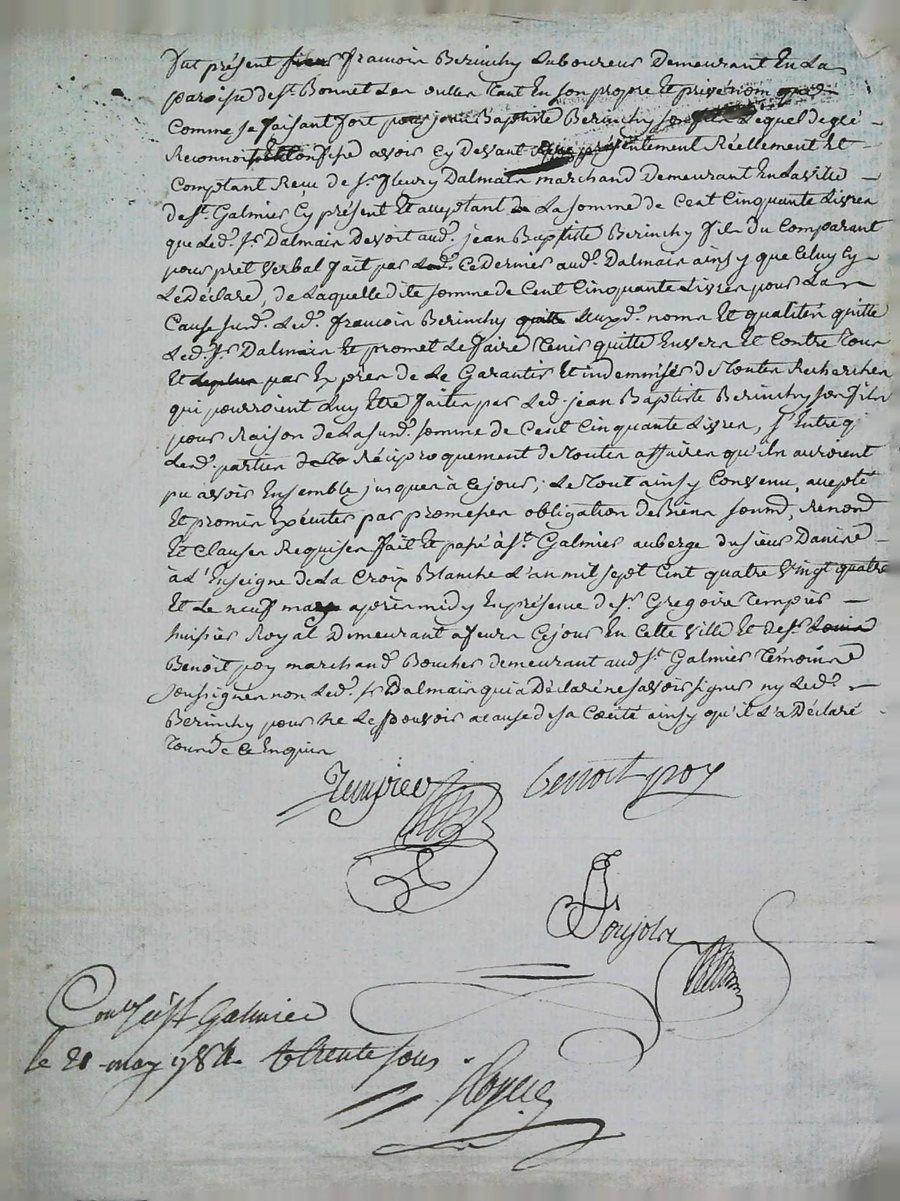 fut présent françois Berinchy Laboureur Demeurant En La
paroisse de st. Bonnet Les oulles tant En son propre Et privé nom
comme se faisant fort pour jean Baptiste Berinchy son fils Lequel de gré
Reconnoit Et Confesse avoir Cy Devant présentement Réellement Et
Comptant Reçu de sr. fleury Dalmain marchand Demeurant En La ville
de st. Galmier Cy présent Et acceptant La somme de Cent Cinquante Livres
que Led. sr. Dalmain Devoit aud. jean Baptiste Berinchy fils du Comparant
pour prêt verbal fait par Ce Dernier aud. Dalmain ainsy que Celuy Cy
Le Déclare, de Laquelle dite somme de Cent Cinquante Livres pour La
Cause susd. Led. francois Berinchy auxd. noms Et qualités quitte
Led. sr. Dalmain Et promet Le faire tenir quitte Envers Et Contre tous
Et par Exprès de Le Garantir Et indemniser de toutes Recherches
qui pourroient Luy Etre faites par Led. jean Baptiste Berinchy son fils
pour Raison de La susd. somme de Cent Cinquante Livres, s'Entreq
Lesd. parties Réciproquement de toutes affaires qu'ils auroient
pu avoir Ensemble jusques à ce jour; Le tout ainsy Convenu, accepté
Et promis Exécuter par promesses obligation de Biens soumd. Renond
Et Clauses Requises fait Et passé à st. Galmier auberge du sieur Daniere
à L'Enseigne de La Croix Blanche L'an mil sept Cent quatre vingt quatre
Et Le neuf may après midy En présence de sr. Gregoire tempier
huissier Royal Demeurant a feurs Ce jour En Cette ville Et de sr.
Benoît poy marchand Boucher demeurant aud. st. Galmier témoins
soussignés non Led. sr. Dalmain qui a Déclaré ne savoir signer ny Led.
Berinchy pour ne Le pouvoir a cause de sa Cécité ainsy qu'il L'a Déclaré
tous de ce Enquis
Tempier benoit poy
Poujols
Conlé à st Galmier
le 21 may 1784 trente sous